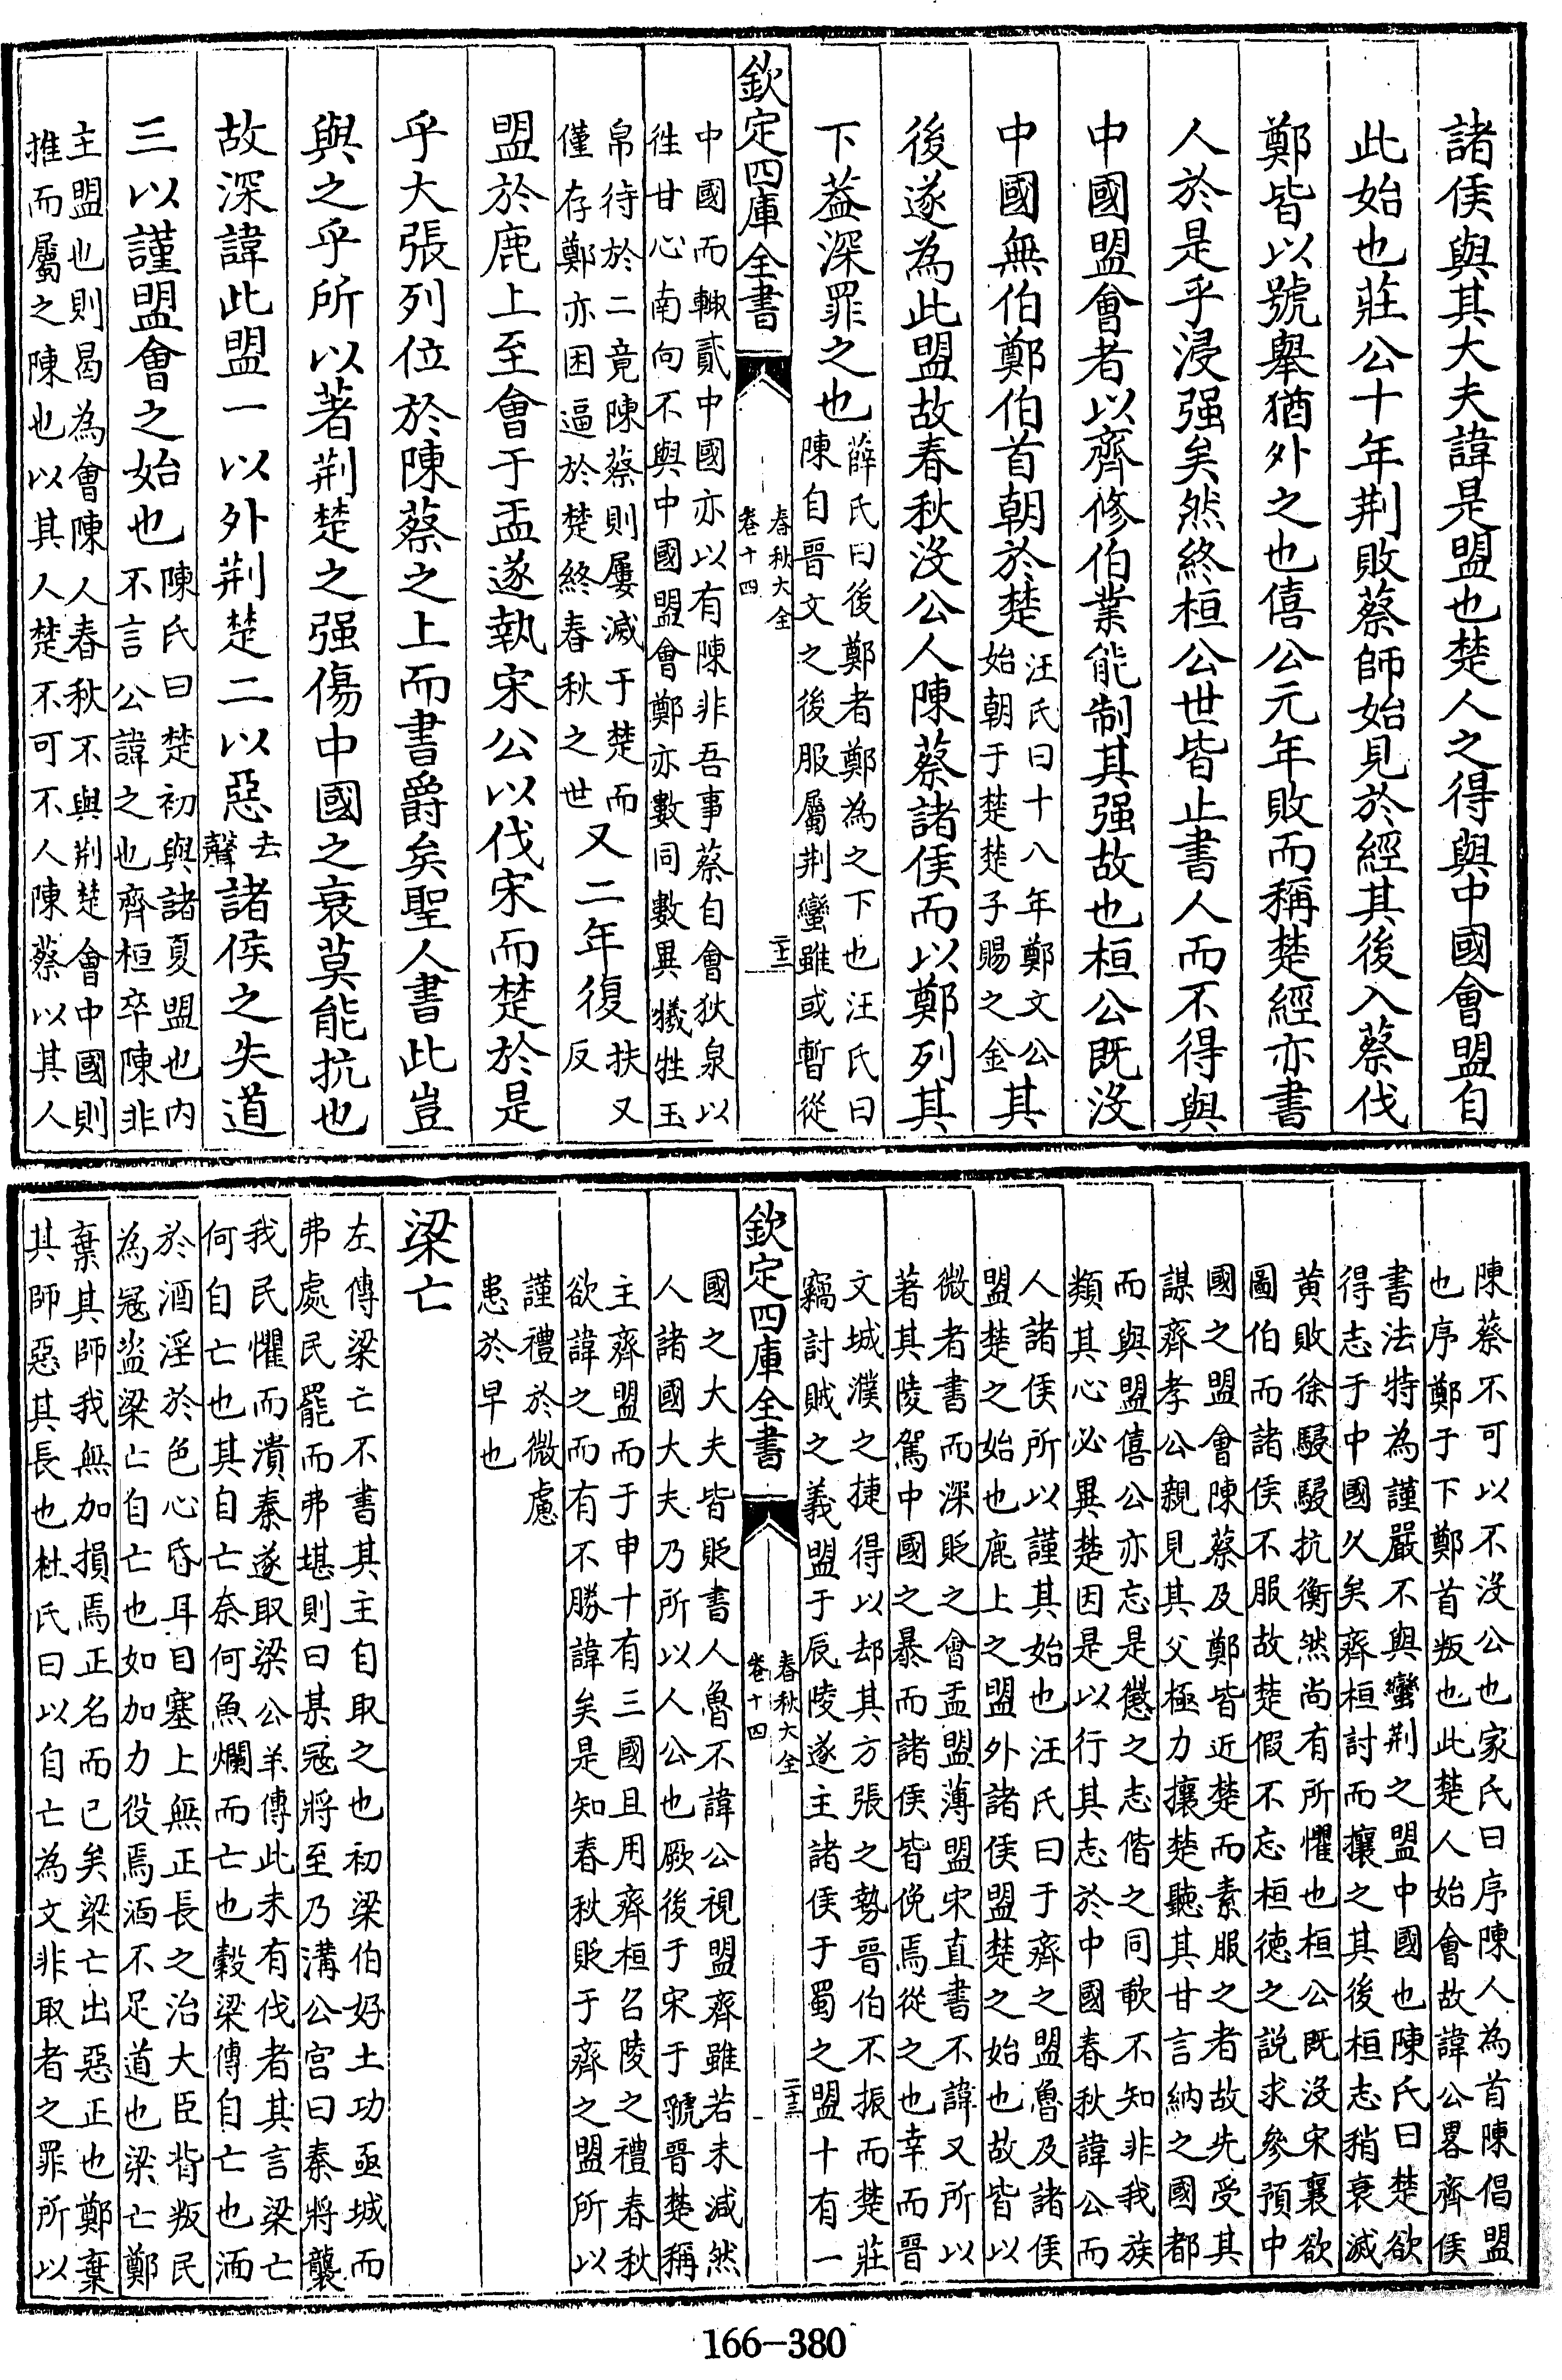 諸侯與其大夫諱是盟也楚人之得與中國會盟自
此始也莊公十年荆敗蔡師始見於經其後入蔡伐
鄭皆以號舉猶外之也僖公元年敗而稱楚經亦書
人於是乎浸强矣然終桓公世皆止書人而不得與
中國盟會者以齊修伯業能制其强故也桓公既沒
中國無伯鄭伯首朝於楚汪氏曰十八年鄭文公始朝于楚楚子賜之金其
後遂為此盟故春秋沒公人陳蔡諸侯而以鄭列其
下葢深罪之也薛氏曰後鄭者鄭為之下也汪氏曰陳自晉文之後服屬荆蠻雖或暫從
欽定四庫全書
春秋大全
卷十四
二十二
中國而輙貳中國亦以有陳非吾事蔡自會狄泉以
徃甘心南向不與中國盟會鄭亦數同數異犧牲玉
帛待於二竟陳蔡則屢滅于楚而
僅存鄭亦困逼於楚終春秋之世又二年復扶又反
盟於鹿上至會于盂遂執宋公以伐宋而楚於是
乎大張列位於陳蔡之上而書爵矣聖人書此豈
與之乎所以著荆楚之强傷中國之衰莫能抗也
故深諱此盟一以外荆楚二以惡去聲諸侯之失道
三以謹盟會之始也陳氏曰楚初與諸夏盟也内不言公諱之也齊桓卒陳非
主盟也則曷為會陳人春秋不與荆楚會中國則
推而屬之陳也以其人楚不可不人陳蔡以其人
陳蔡不可以不沒公也家氏曰序陳人為首陳倡盟
也序鄭于下鄭首叛也此楚人始會故諱公畧齊侯
書法特為謹嚴不與蠻荆之盟中國也陳氏曰楚欲
得志于中國久矣齊桓討而攘之其後桓志稍衰滅
黄敗徐駸駸抗衡然尚有所懼也桓公既沒宋襄欲
圖伯而諸侯不服故楚假不忘桓徳之説求參預中
國之盟會陳蔡及鄭皆近楚而素服之者故先受其
謀齊孝公親見其父極力攘楚聽其甘言納之國都
而與盟僖公亦忘是懲之志偕之同歃不知非我族
類其心必異楚因是以行其志於中國春秋諱公而
人諸侯所以謹其始也汪氏曰于齊之盟魯及諸侯
盟楚之始也鹿上之盟外諸侯盟楚之始也故皆以
微者書而深貶之會盂盟薄盟宋直書不諱又所以
著其陵駕中國之暴而諸侯皆俛焉從之也幸而晉
文城濮之捷得以却其方張之勢晉伯不振而楚莊
竊討賊之義盟于辰陵遂主諸侯于蜀之盟十有一
欽定四庫全書
春秋大全
卷十四
二十三
國之大夫皆貶書人魯不諱公視盟齊雖若未減然
人諸國大夫乃所以人公也厥後于宋于虢晉楚稱
主齊盟而于申十有三國且用齊桓召陵之禮春秋
欲諱之而有不勝諱矣是知春秋貶于齊之盟所以
謹禮於微慮
患於早也
梁亡
左傳梁亡不書其主自取之也初梁伯好土功亟城而
弗處民罷而弗堪則曰某冦將至乃溝公宫曰秦將襲
我民懼而潰秦遂取梁公羊傳此未有伐者其言梁亡
何自亡也其自亡奈何魚爛而亡也穀梁傳自亡也湎
於酒淫於色心昏耳目塞上無正長之治大臣背叛民
為冦盜梁亡自亡也如加力役焉湎不足道也梁亡鄭
棄其師我無加損焉正名而已矣梁亡出惡正也鄭棄
其師惡其長也杜氏曰以自亡為文非取者之罪所以
166-380